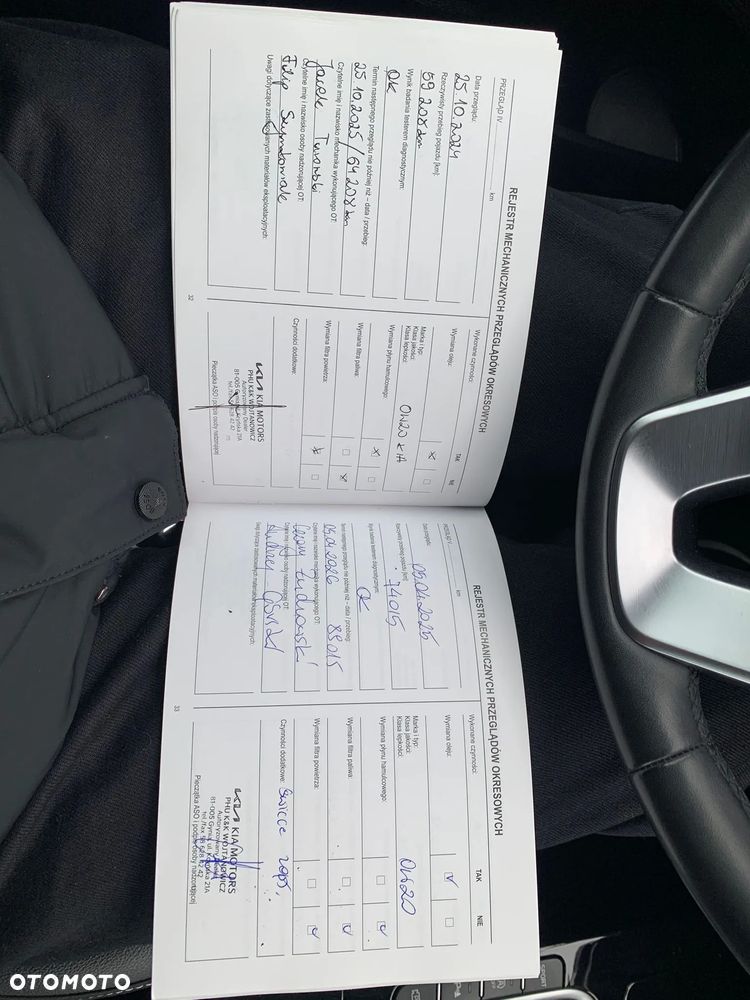 REJESTR MECHANICZNYCH PRZEGLĄDÓW OKRESOWYCH
PRZEGLĄD IV km
Data przeglądu:
25.10.2024
Rzeczywisty przebieg pojazdu [km]:
59 208 km
Wynik badania testerem diagnostycznym:
OK
Termin następnego przeglądu nie później niż – data / przebieg:
25.10.2025/64 208 km
Czytelne imię i nazwisko mechanika wykonującego OT:
Jacek Turonski
Czytelne imię i nazwisko osoby nadzorującej OT:
Filip
Uwagi dotyczące zastosowanych materiałów eksploatacyjnych:
32
Wykonane czynności:
TAK NIE
Wymiana oleju: x
Marka i typ:
Klasa jakości:
Klasa lepkości:
0W20 KIA
Wymiana płynu hamulcowego: x
Wymiana filtra paliwa: x
Wymiana filtra powietrza: x
Czynności dodatkowe:
KIA KIA MOTORS
PHU K&K WOJTANOWICZ
Autoryzowany Dealer
81-005
Pieczątka ASO i podpis osoby nadzorującej
REJESTR MECHANICZNYCH PRZEGLĄDÓW OKRESOWYCH
PRZEGLĄD V km
Data przeglądu:
Rzeczywisty przebieg pojazdu [km]:
74015
Wynik badania testerem diagnostycznym:
OK
Termin następnego przeglądu nie później niż – data / przebieg:
2026 89015
Czytelne imię i nazwisko mechanika wykonującego OT:
Cezary Żuchowski
Czytelne imię i nazwisko osoby nadzorującej OT:
Uwagi dotyczące zastosowanych materiałów eksploatacyjnych:
33
Wykonane czynności:
TAK NIE
Wymiana oleju:
Marka i typ:
Klasa jakości:
Klasa lepkości:
0W20
Wymiana płynu hamulcowego:
Wymiana filtra paliwa:
Wymiana filtra powietrza:
Czynności dodatkowe: świece zapł.
KIA KIA MOTORS
PHU K&K WOJTANOWICZ
Autoryzowany Dealer
81-005 Gdynia, ul. 21A
Pieczątka ASO i podpis osoby nadzorującej
OTOMOTO